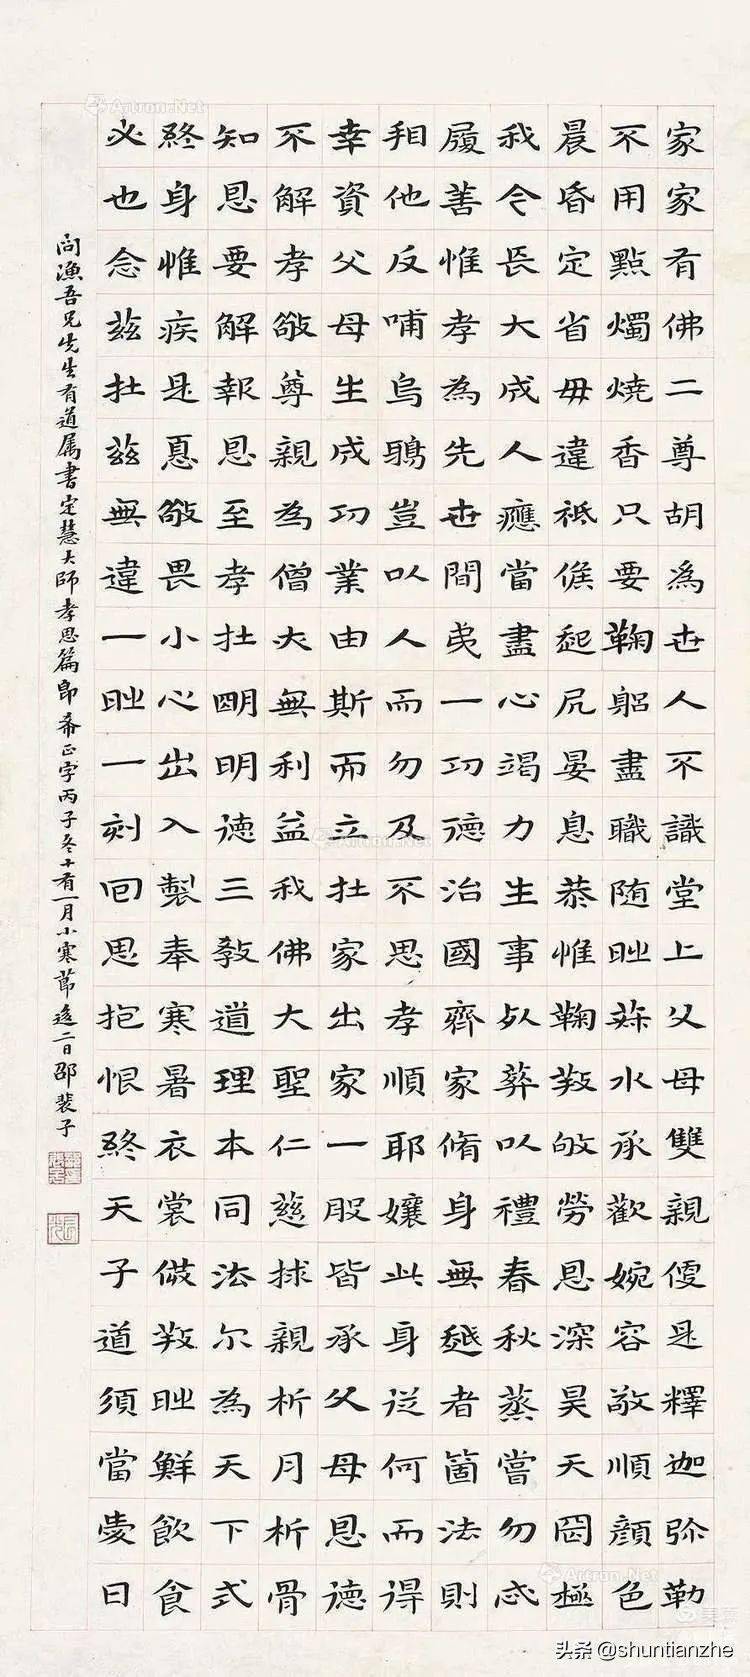 家家有佛二尊胡為世人不識堂上父母雙親便是釋迦弥勒
不用點燭燒香只要鞠躬盡職随時菽水承歡婉容敬順顏色
晨昏定省毋違祗候起居晏息恭惟鞠養劬勞恩深昊天罔極
我今長大成人應當盡心竭力生事死葬以禮春秋蒸嘗勿忒
履善惟孝為先世間第一功德治國齊家脩身無越者箇法則
相他反哺烏鴉豈以人而勿及不思孝順耶孃此身従何而得
幸資父母生成功業由斯而立在家出家一般皆承父母恩德
不解孝敬尊親為僧大無利益我佛大聖仁慈捄親析月析骨
知恩要解報恩至孝在明明德三教道理本同法尔為天下式
終身惟疾是憂敬畏小心出入製奉寒暑衣裳養時鮮飲食
必也念茲在茲無違一時一刻回思抱恨終天子道須當愛日
問漁吾兄先生有道属書定慧大師孝思篇即希正字丙子冬十有一月小寒節逾二日邵裴子
Artron.Net
Artron.Net
Artron.Net
头条 @shuntianzhe